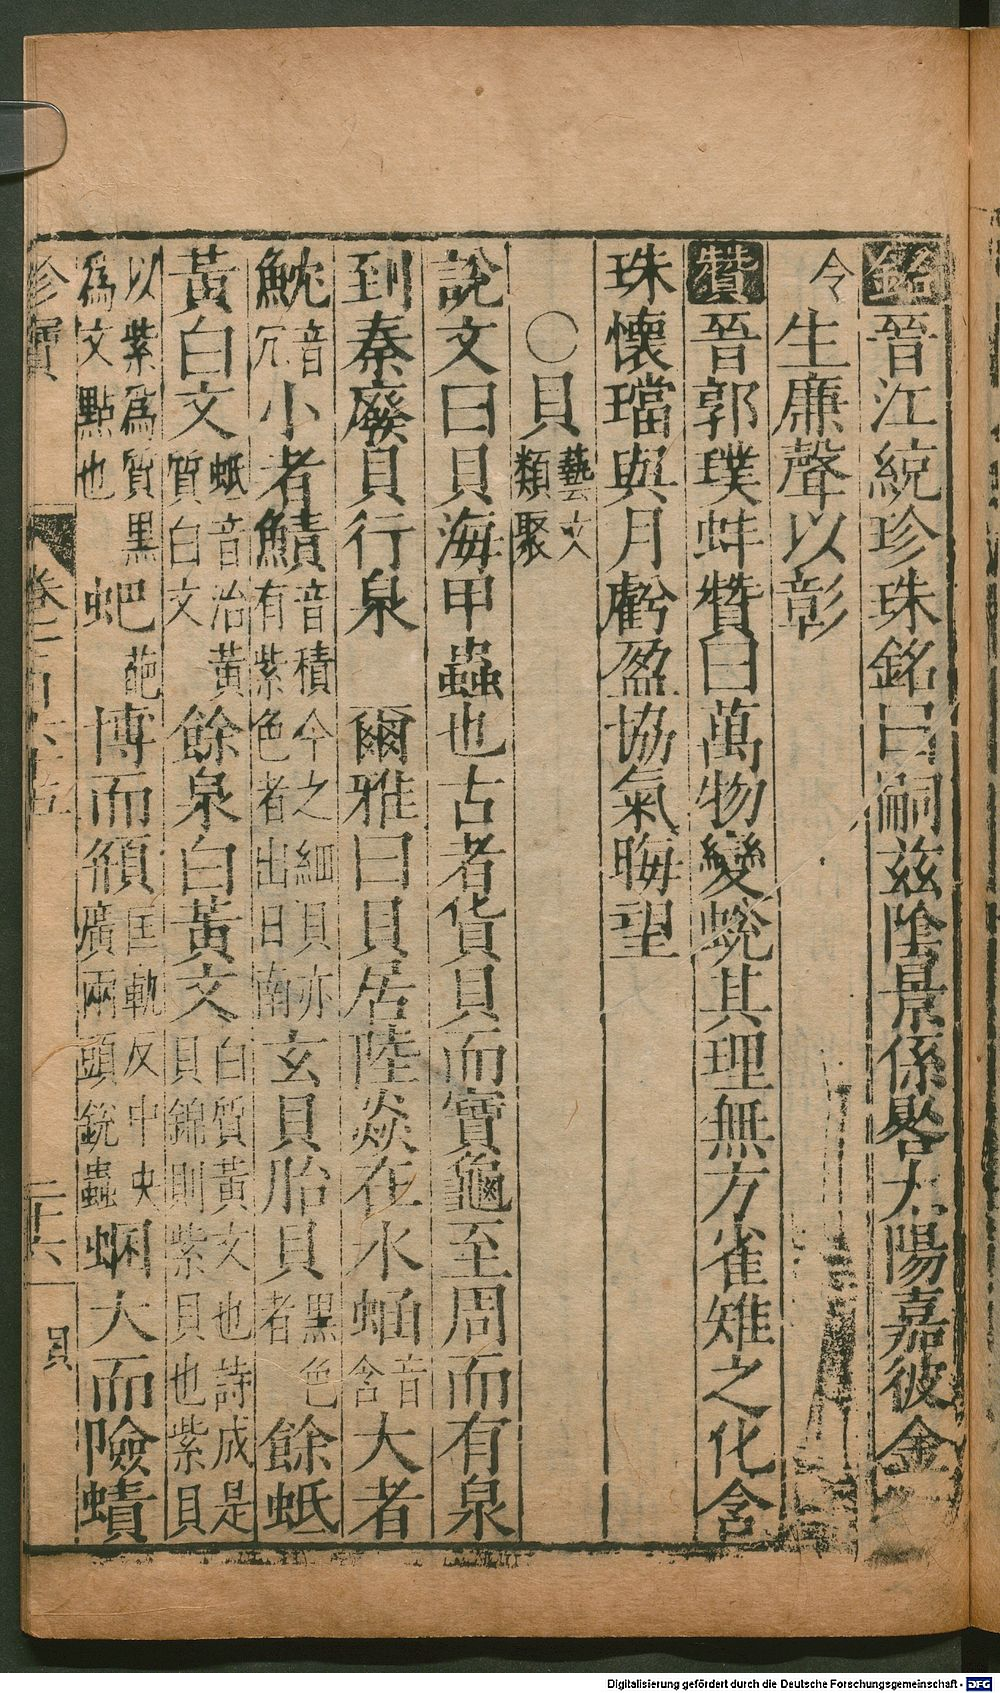 銘晉江統珍珠銘曰嗣兹陰景係晷太陽嘉彼金
令生廉聲以彰
贊晉郭璞蚌贊曰萬物變蛻其理無方雀雉之化含
珠懷璫與月虧盈協氣晦望
〇貝藝文類聚
說文曰貝海甲蟲也古者貨貝而寶龜至周而有泉
到秦廢貝行泉　爾雅曰貝居陸猋在水蜬音含大者
魧音冗小者鰿音積今之細貝亦有紫色者出日南玄貝胎貝黑色者餘蚳
黃白文蚳音治黃質白文餘泉白黃文白質黃文也詩成是貝錦則紫貝也紫貝
以紫爲質黑爲文點也蚆葩博而頯匡軌反中央廣兩頭銳蟲蜠大而險蟦
珍寶 卷之二百六十五 二十六 貝
Digitalisierung gefördert durch die Deutsche Forschungsgemeinschaft - DFG